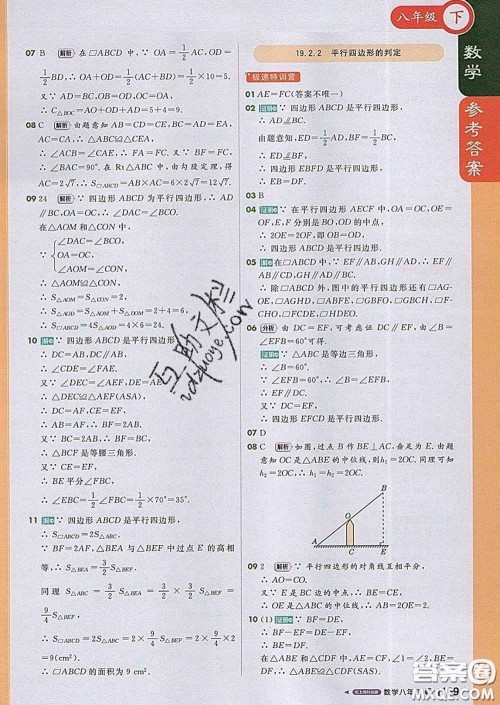 八年级 下
数学
参考答案
07 B 解析 在□ABCD中，∵ OA=OC=1/2AC，OB=OD=1/2BD，
∴ AO+OD=1/2(AC+BD)=1/2×10=5.
又∵ AD=4，
∴ C△BOC=AO+OD+AD=5+4=9.
08 C 解析 由题意知 AB=CD=CE，BC=AD=EA，
∴ △ABC≌△CEA，∴ ∠FAC=∠FCA.
∴ ∠BCF=∠CAE，∴ FA=FC. 又∵ BF=FC，
∴ ∠BAC=90°. 在Rt△ABC中，由勾股定理，得
AC=2√7，∴ S□ABCD=AB×AC=6×2√7=12√7.
09 24 解析 ∵ 四边形ABCD为平行四边形，∴ AD//
BC，OA=OC，∴ ∠DAC=∠BCO.
在△AOM和△CON中，
∠DAC=∠BCO，
∵ OA=OC，
∠AOM=∠CON，
∴ △AOM≌△CON，
∴ S△AOM=S△CON=2，
∴ S△AOD=S△DOM+S△AOM=2+4=6，
∴ S□ABCD=4S△AOD=4×6=24.
10 ∵ 四边形ABCD是平行四边形，
∴ DC=AB，DC//AB，
∴ ∠CDE=∠FAE.
又∵ DE=AE，∠CED=∠FEA，
∴ △DEC≌△AEF(ASA)，
∴ DC=AF，CE=EF.
∴ AB=AF，∴ BF=2AB.
又∵ BC=2AB，∴ BF=BC，
∴ △FBC是等腰三角形.
又∵ CE=EF，
∴ BE平分∠FBC，
∴ ∠EBC=1/2∠FBC=1/2×70°=35°.
11 ∵ 四边形ABCD是平行四边形，
∴ S□ABCD=2S△ABC.
∵ BF=2AF，△BEA与△BEF中过点E的高相
等，∴ S△BEA=3/2S△BEF.
同理 S△ABC=3/2S△BEA，∴ S△ABC=9/4S△BEF，
∴ S□ABCD=2S△ABC=2×9/4S△BEF=2×9/4×2
=9(cm²).
∴ □ABCD的面积为9 cm².
19.2.2 平行四边形的判定
极速特训营
01 AE=FC(答案不唯一)
02 证明 ∵ 四边形ABCD是平行四边形，
∴ AD//BC.
由题意知，ED=1/2AD，BF=1/2BC，
∴ ED//BF.
∴ 四边形EBFD是平行四边形.
03 B
04 证明 ∵ 在平行四边形ABCD中，OA=OC，OB=
OF，E，F分别是BO，OD的中点，
∴ 2OE=2OF，即OE=OF.
∴ 四边形AECF是平行四边形.
05 在□ABCD中，∵ AE//FH//AB，
∴ AD//GH//BC，AB//EF//CD.
∴ 除□ABCD外，图中的平行四边形还有□AG-
OE，□AGHD，□ABFE，□GBFO，□GBCH，□F-
CHO，□FCDE，□HDEO.
06 分析 由DC=EF，可考虑证DC//EF，由∠B=
∠EFB=60°可得.
证明 ∵ △ABC是等边三角形，
∴ ∠B=60°.
∵ ∠EFB=60°，
∴ ∠B=∠EFB.
∴ EF//DC.
又∵ DC=EF，
∴ 四边形EFCD是平行四边形.
07 D
08 C 解析 如图，过点B作BE⊥AC，垂足为E. 由题
意知OC是△ABE的中位线，则h₁=2OC. 同理可
得h₂=2OC，则h₁=h₂=2OC.
B
O
A C E
09 2 解析 ∵ 平行四边形的对角线互相平分，
∴ OA=OC.
又∵ E是边BC的中点，
∴ OE是△ABC的中位线，
∴ AB=2OE=2.
10 (1) 证明 ∵ BF=DE，
∴ BF-EF=DE-EF，
∴ BE=DF.
互助文栏
hdzuoye.com
配上海科技版 数学八年
答案圈